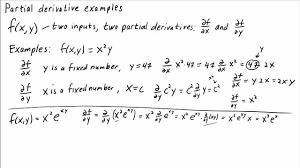 Partial derivative examples
f(x,y) - two inputs, two partial derivatives: ∂f/∂x and ∂f/∂y
Examples: f(x,y) = x²y
∂f/∂x y is a fixed number, y=47 ∂/∂x x²·47 = 47 ∂/∂x x² = 47·2x
y
∂f/∂x = y 2x = 2xy
∂f/∂y x is a fixed number, x=c ∂/∂y c²y = c² ∂/∂y y = c²
∂f/∂y = x²
f(x,y) = x²e^{xy} ∂f/∂y = ∂/∂y (x²e^{xy}) = x² ∂/∂y e^{xy} = x²·e^{xy}·∂/∂y(xy) = x²e^{xy}·x = x³e^{xy}